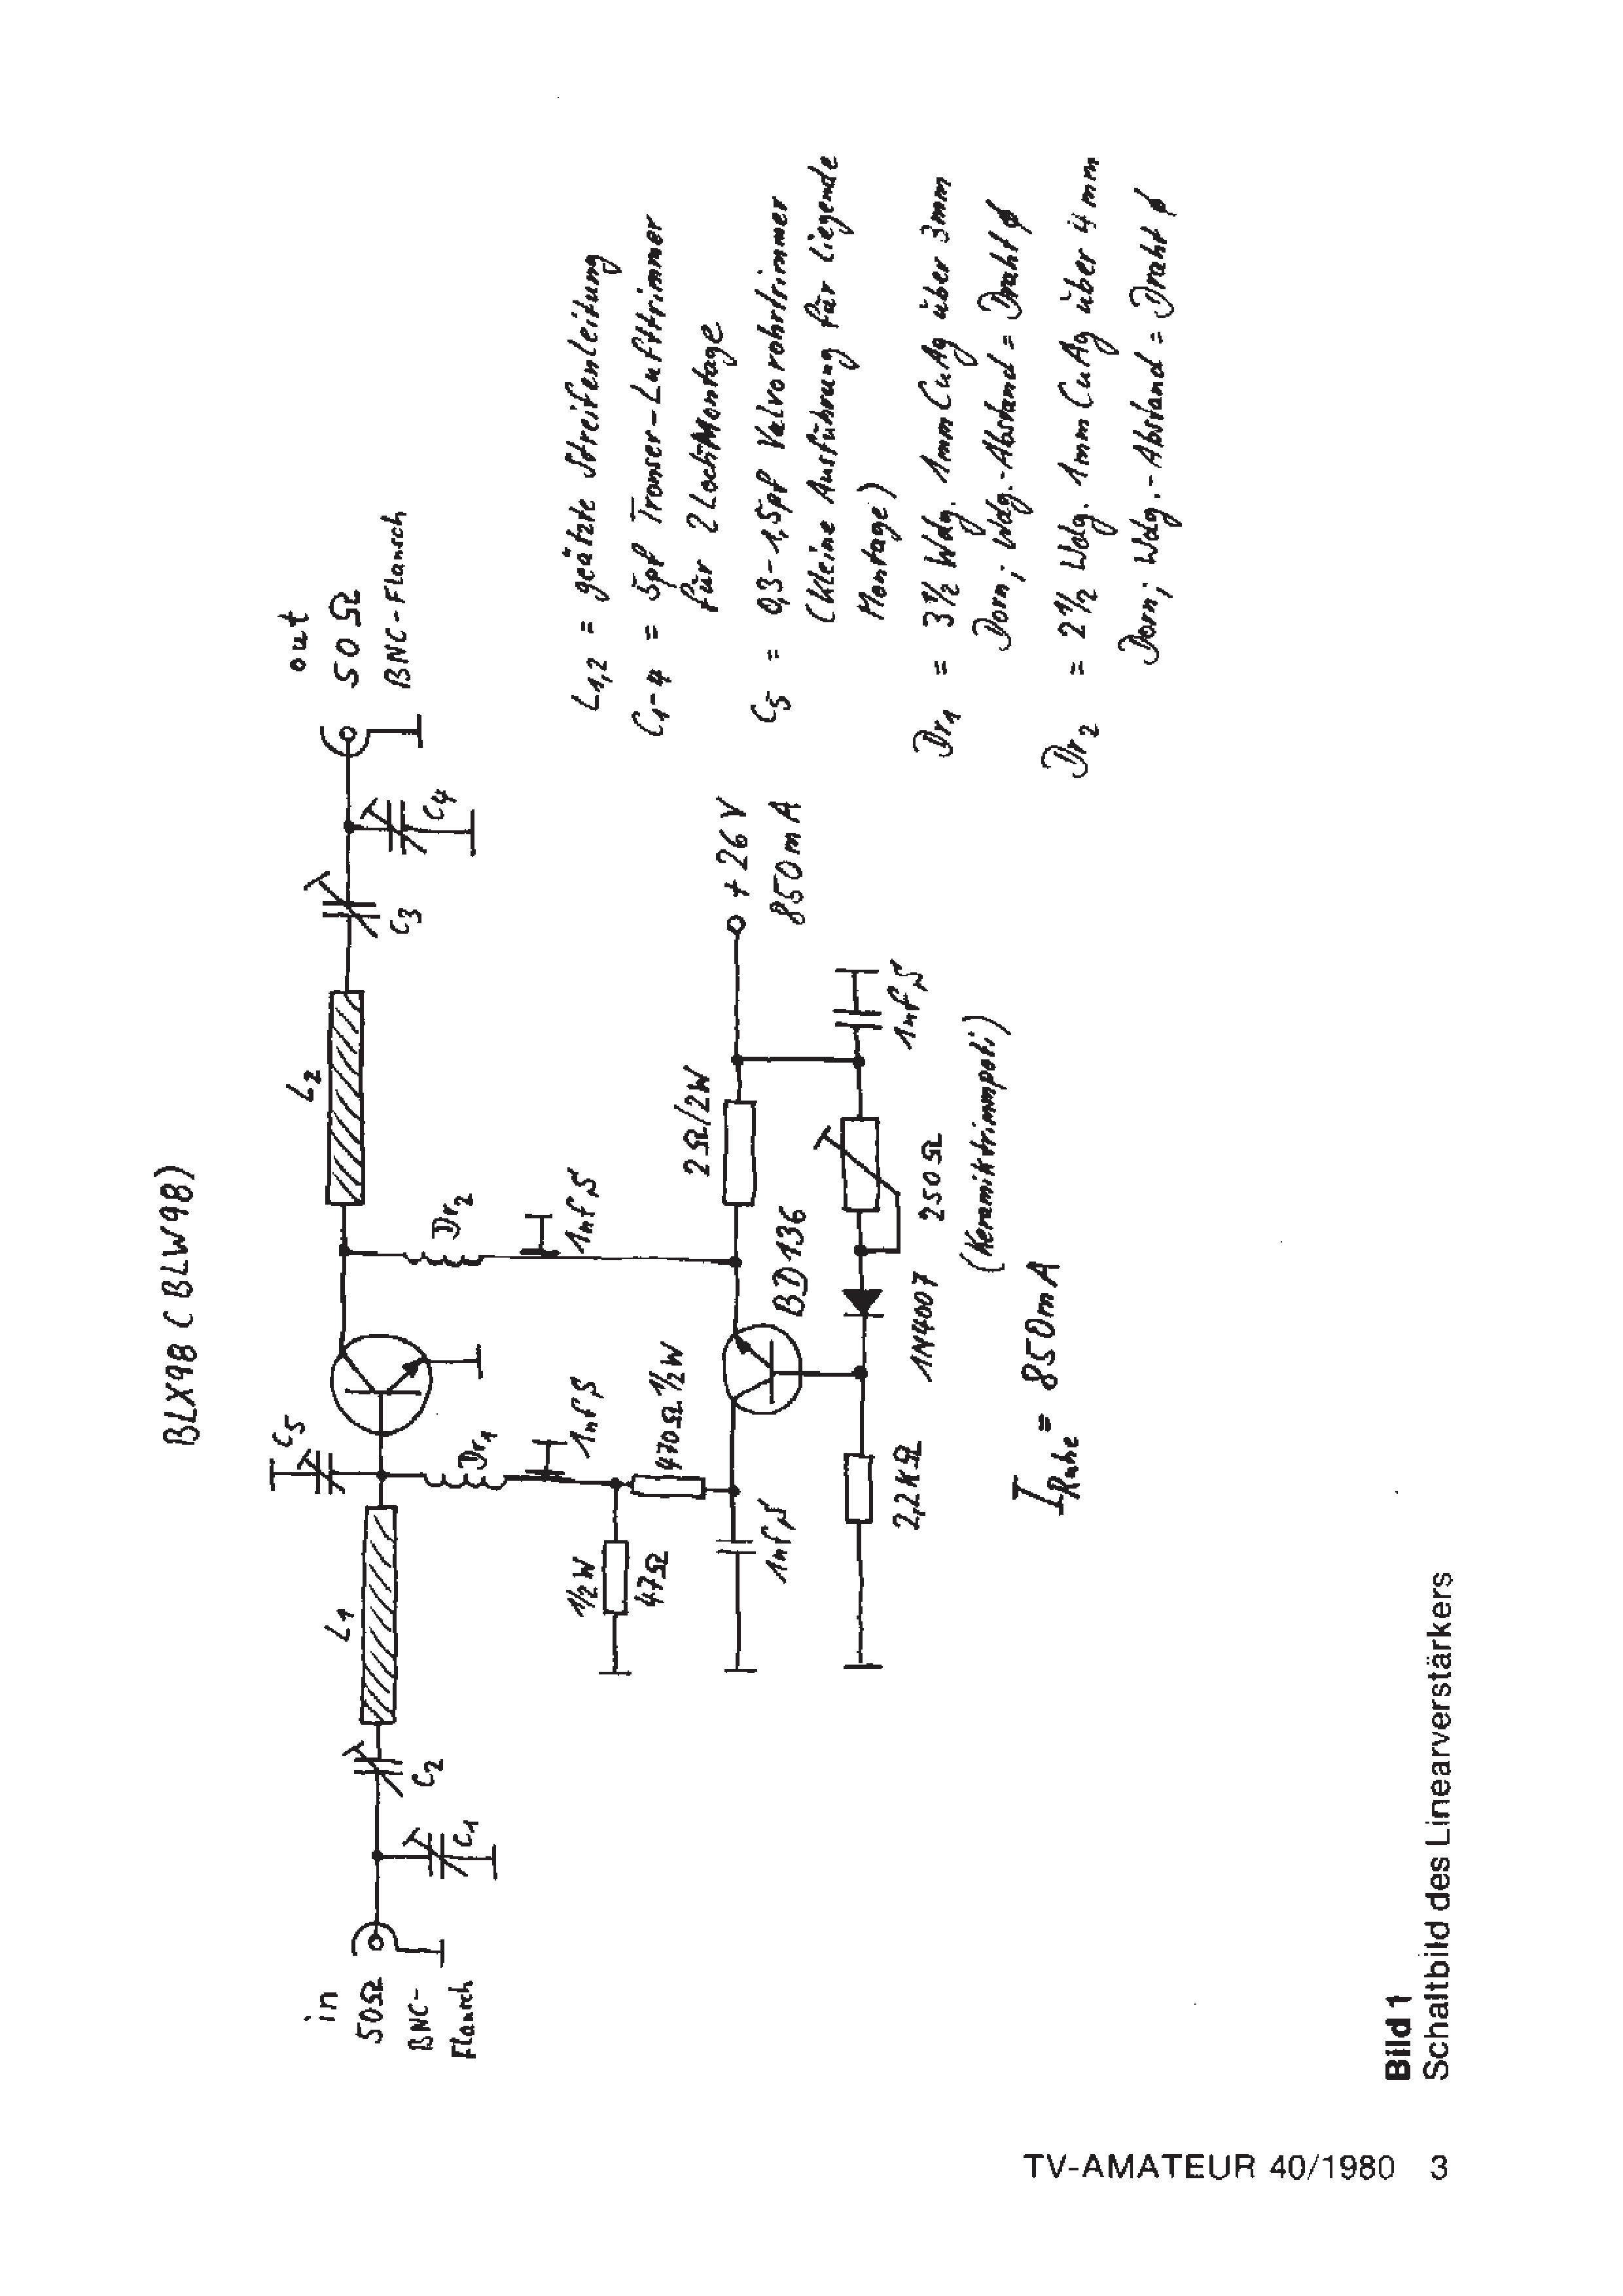 BLX98 (BLW98)
in
50Ω
BNC-
Flansch
C1
C2
L1
C5
Dr1
1nF
1/2W
47Ω
470Ω 1/2W
1nF
L2
Dr2
1nF
C3
C4
out
50Ω
BNC-Flansch
2Ω/2W
BD136
+26V
850mA
2,2KΩ
1N4007
250Ω
(Keramiktrimmpoti)
1nF
IRuhe = 850mA
L1,2 = geätzte Streifenleitung
C1-4 = 5pf Tronser-Lufttrimmer
für 2LochMontage
C5 = 0,3-1,5pf Valvorohrtrimmer
(kleine Ausführung für liegende
Montage)
Dr1 = 3 1/2 Wdg. 1mm CuAg über 3mm
Dorn; Wdg.-Abstand = Draht ø
Dr2 = 2 1/2 Wdg. 1mm CuAg über 4mm
Dorn; Wdg.-Abstand = Draht ø
Bild 1
Schaltbild des Linearverstärkers
TV-AMATEUR 40/1980 3